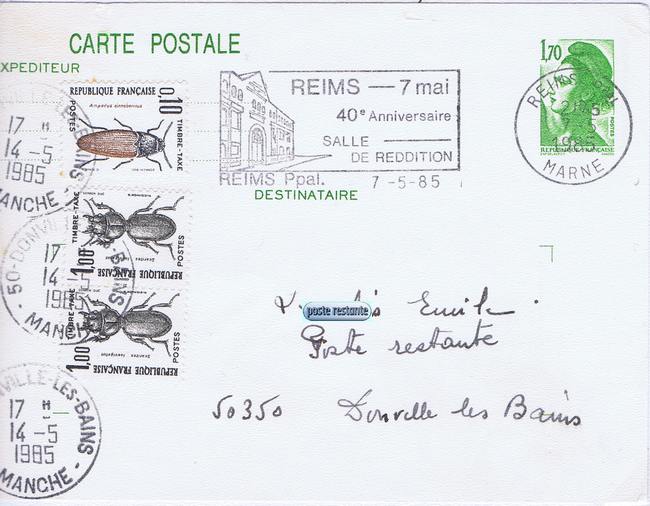 CARTE POSTALE
EXPEDITEUR
REPUBLIQUE FRANÇAISE
0,10
TIMBRE-TAXE
POSTES
Ampedus cinnabarinus
TIMBRE-TAXE
1,00
REPUBLIQUE FRANÇAISE
POSTES
TIMBRE-TAXE
1,00
REPUBLIQUE FRANÇAISE
POSTES
17 H
14-5
1985
MANCHE -
50-DONVILLE-LES-BAINS
17
14-5
1985
MANCHE
VILLE-LES-BAINS
17 H
14-5
1985
MANCHE -
REIMS — 7 mai
40e Anniversaire
SALLE
DE REDDITION
REIMS Ppal. 7-5-85
1,70
REIMS
1985
MARNE
POSTES
REPUBLIQUE FRANÇAISE
DESTINATAIRE
Emile
poste restante
Poste restante
50350 Donville les Bains